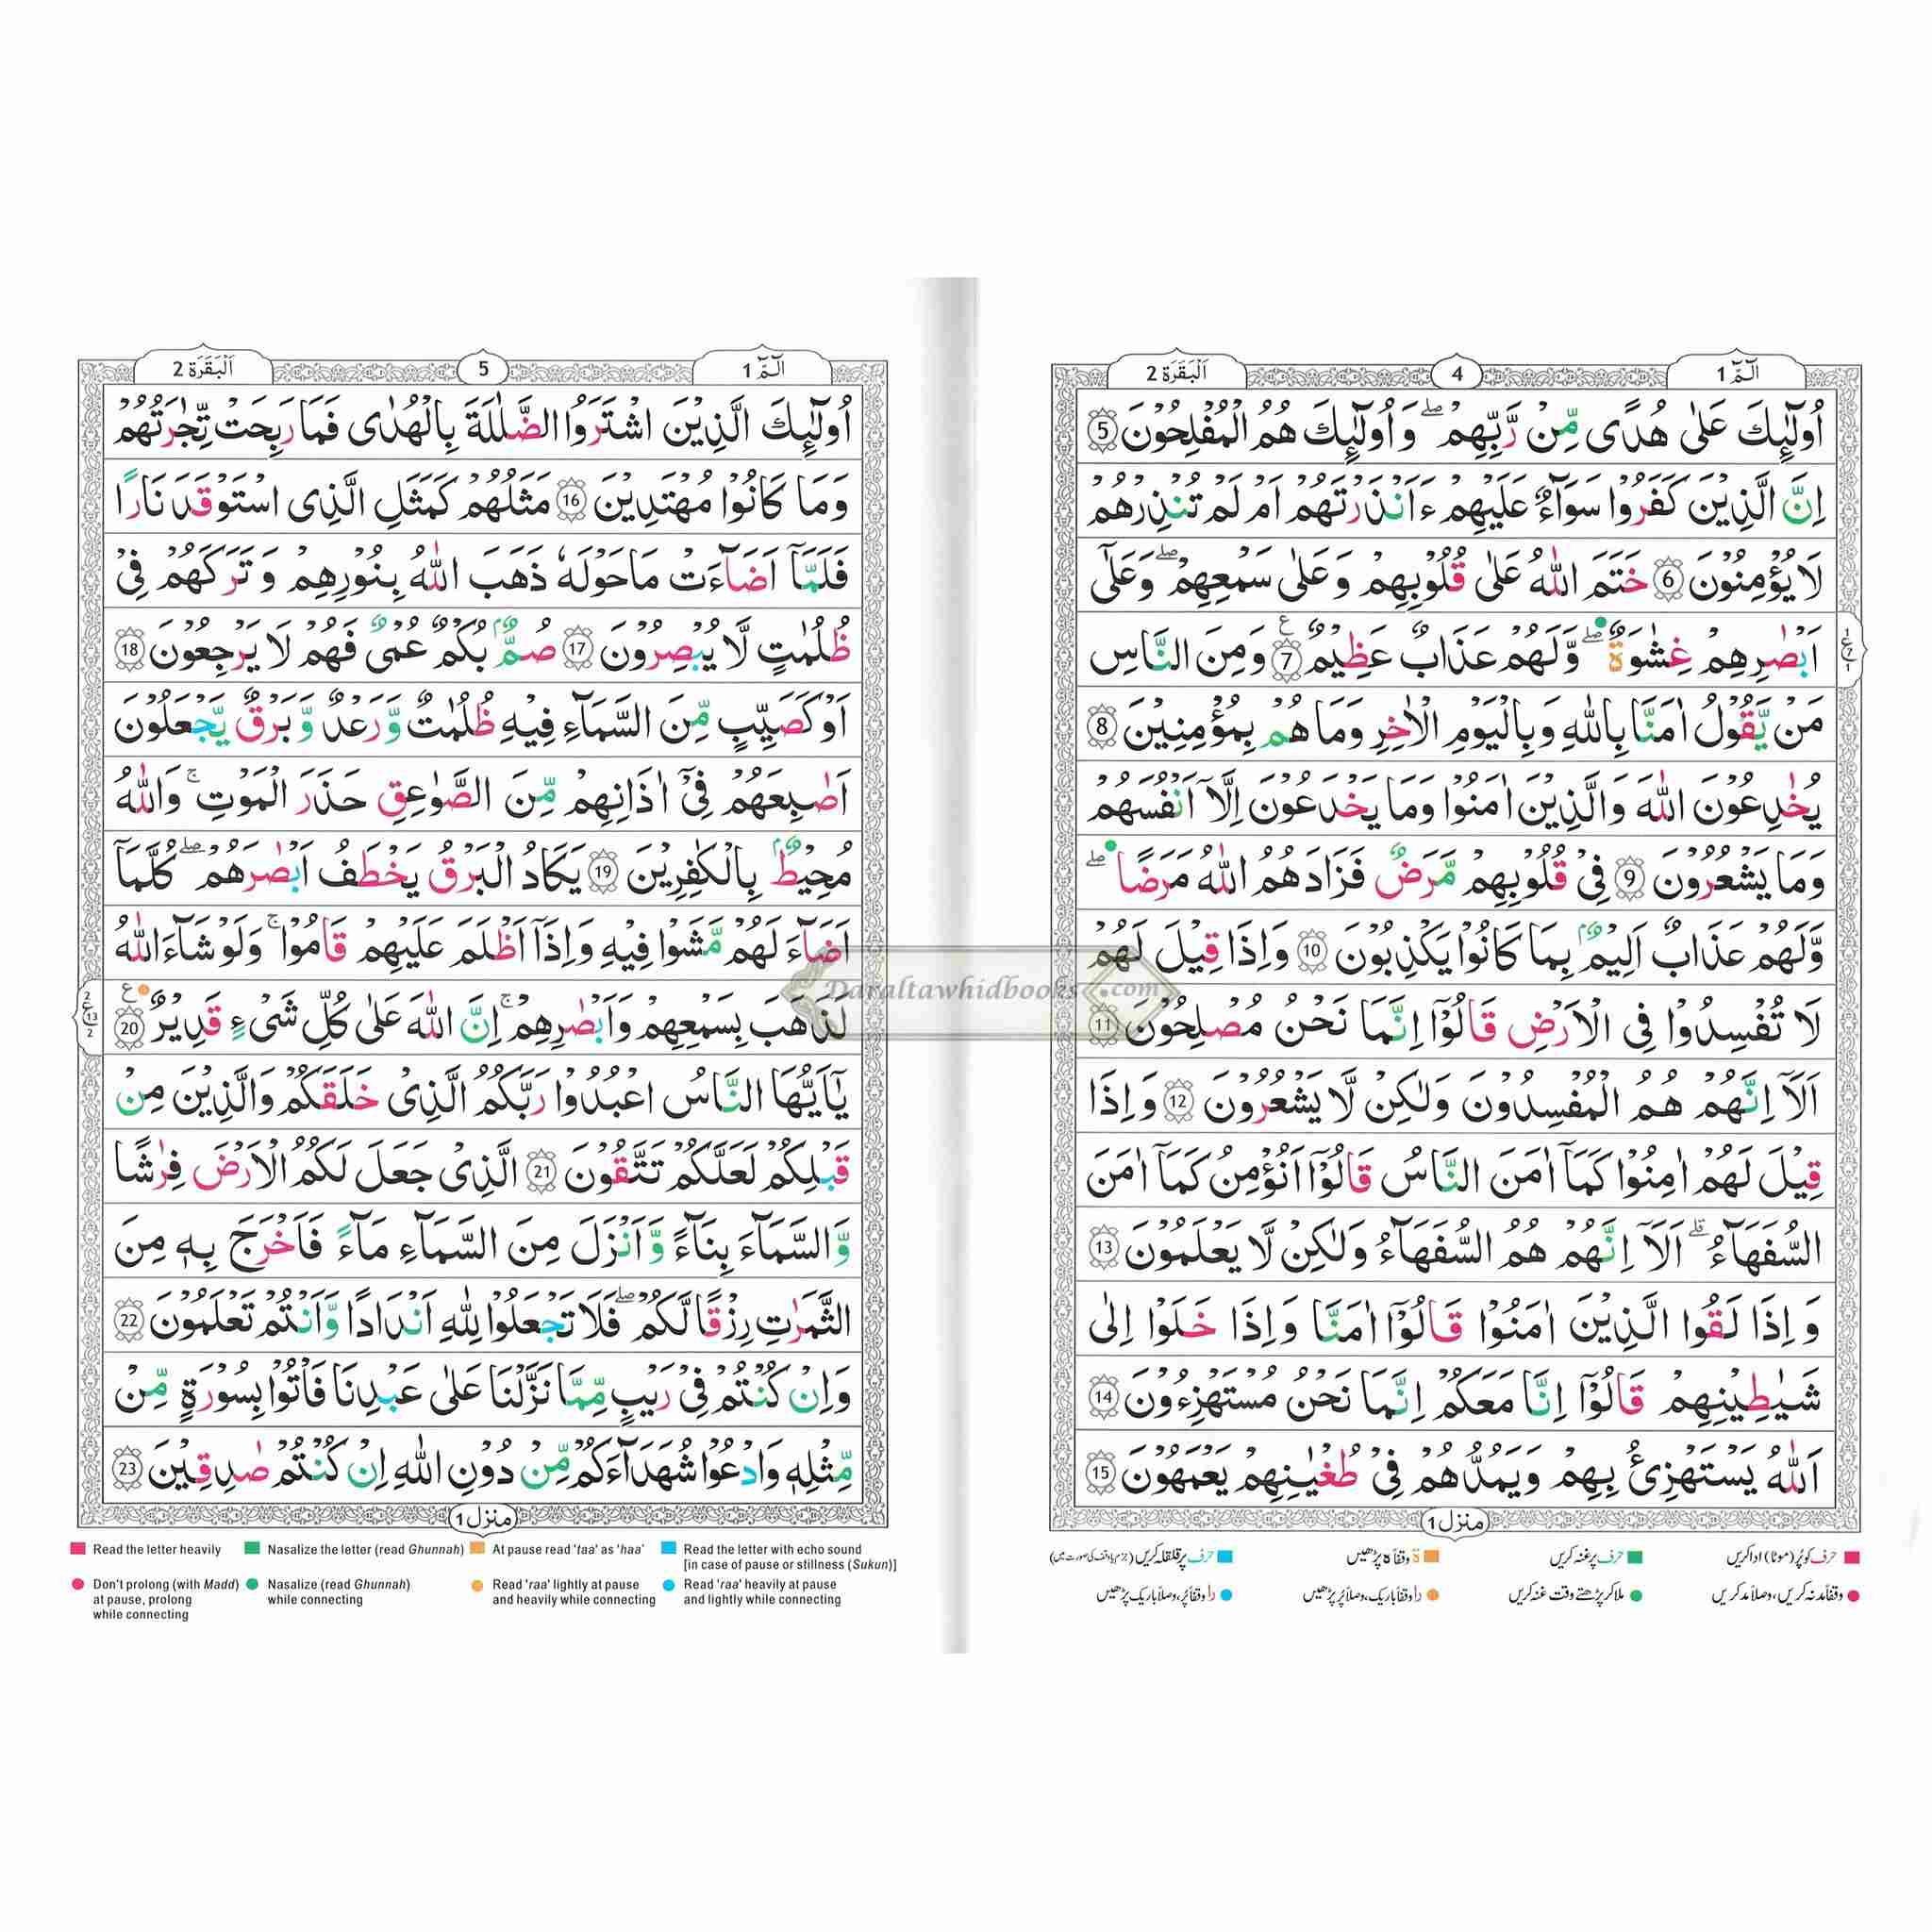 الٓمّٓ 1
4
اَلْبَقَرَة 2
اُولٰٓئِكَ عَلٰى هُدًى مِّنْ رَّبِّهِمْ ۖ وَاُولٰٓئِكَ هُمُ الْمُفْلِحُوْنَ 5
اِنَّ الَّذِيْنَ كَفَرُوْا سَوَآءٌ عَلَيْهِمْ ءَاَنْذَرْتَهُمْ اَمْ لَمْ تُنْذِرْهُمْ
لَا يُؤْمِنُوْنَ 6 خَتَمَ اللّٰهُ عَلٰى قُلُوْبِهِمْ وَعَلٰى سَمْعِهِمْ ۖ وَعَلٰٓى
اَبْصٰرِهِمْ غِشٰوَةٌ ۖ وَّلَهُمْ عَذَابٌ عَظِيْمٌ 7 وَمِنَ النَّاسِ
مَنْ يَّقُوْلُ اٰمَنَّا بِاللّٰهِ وَبِالْيَوْمِ الْاٰخِرِ وَمَا هُمْ بِمُؤْمِنِيْنَ 8
يُخٰدِعُوْنَ اللّٰهَ وَالَّذِيْنَ اٰمَنُوْا وَمَا يَخْدَعُوْنَ اِلَّآ اَنْفُسَهُمْ
وَمَا يَشْعُرُوْنَ 9 فِيْ قُلُوْبِهِمْ مَّرَضٌ فَزَادَهُمُ اللّٰهُ مَرَضًا ۖ
وَّلَهُمْ عَذَابٌ اَلِيْمٌ بِمَا كَانُوْا يَكْذِبُوْنَ 10 وَاِذَا قِيْلَ لَهُمْ
لَا تُفْسِدُوْا فِى الْاَرْضِ قَالُوْٓا اِنَّمَا نَحْنُ مُصْلِحُوْنَ 11
اَلَآ اِنَّهُمْ هُمُ الْمُفْسِدُوْنَ وَلٰكِنْ لَّا يَشْعُرُوْنَ 12 وَاِذَا
قِيْلَ لَهُمْ اٰمِنُوْا كَمَآ اٰمَنَ النَّاسُ قَالُوْٓا اَنُؤْمِنُ كَمَآ اٰمَنَ
السُّفَهَآءُ ۗ اَلَآ اِنَّهُمْ هُمُ السُّفَهَآءُ وَلٰكِنْ لَّا يَعْلَمُوْنَ 13
وَاِذَا لَقُوا الَّذِيْنَ اٰمَنُوْا قَالُوْٓا اٰمَنَّا وَاِذَا خَلَوْا اِلٰى
شَيٰطِيْنِهِمْ قَالُوْٓا اِنَّا مَعَكُمْ اِنَّمَا نَحْنُ مُسْتَهْزِءُوْنَ 14
اَللّٰهُ يَسْتَهْزِئُ بِهِمْ وَيَمُدُّهُمْ فِيْ طُغْيٰنِهِمْ يَعْمَهُوْنَ 15
منزل 1
حرف کو پُر (موٹا) ادا کریں
حرف پر غنہ کریں
ۃ وقفاً ہ پڑھیں
حرف پر قلقلہ کریں (جزم یا وقف کی صورت میں)
وقفاً مد نہ کریں، وصلاً مد کریں
ملا کر پڑھتے وقت غنہ کریں
را وقفاً باریک، وصلاً پُر پڑھیں
را وقفاً پُر، وصلاً باریک پڑھیں
الٓمّٓ 1
5
اَلْبَقَرَة 2
اُولٰٓئِكَ الَّذِيْنَ اشْتَرَوُا الضَّلٰلَةَ بِالْهُدٰى فَمَا رَبِحَتْ تِّجٰرَتُهُمْ
وَمَا كَانُوْا مُهْتَدِيْنَ 16 مَثَلُهُمْ كَمَثَلِ الَّذِى اسْتَوْقَدَ نَارًا
فَلَمَّآ اَضَآءَتْ مَا حَوْلَهٗ ذَهَبَ اللّٰهُ بِنُوْرِهِمْ وَتَرَكَهُمْ فِيْ
ظُلُمٰتٍ لَّا يُبْصِرُوْنَ 17 صُمٌّۢ بُكْمٌ عُمْيٌ فَهُمْ لَا يَرْجِعُوْنَ 18
اَوْ كَصَيِّبٍ مِّنَ السَّمَآءِ فِيْهِ ظُلُمٰتٌ وَّرَعْدٌ وَّبَرْقٌ يَّجْعَلُوْنَ
اَصٰبِعَهُمْ فِيْٓ اٰذَانِهِمْ مِّنَ الصَّوٰعِقِ حَذَرَ الْمَوْتِ ۚ وَاللّٰهُ
مُحِيْطٌۢ بِالْكٰفِرِيْنَ 19 يَكَادُ الْبَرْقُ يَخْطَفُ اَبْصٰرَهُمْ ۖ كُلَّمَآ
اَضَآءَ لَهُمْ مَّشَوْا فِيْهِ وَاِذَآ اَظْلَمَ عَلَيْهِمْ قَامُوْا ۚ وَلَوْ شَآءَ اللّٰهُ
لَذَهَبَ بِسَمْعِهِمْ وَاَبْصٰرِهِمْ ۚ اِنَّ اللّٰهَ عَلٰى كُلِّ شَيْءٍ قَدِيْرٌ 20
يٰٓاَيُّهَا النَّاسُ اعْبُدُوْا رَبَّكُمُ الَّذِيْ خَلَقَكُمْ وَالَّذِيْنَ مِنْ
قَبْلِكُمْ لَعَلَّكُمْ تَتَّقُوْنَ 21 الَّذِيْ جَعَلَ لَكُمُ الْاَرْضَ فِرٰشًا
وَّالسَّمَآءَ بِنَآءً وَّاَنْزَلَ مِنَ السَّمَآءِ مَآءً فَاَخْرَجَ بِهٖ مِنَ
الثَّمَرٰتِ رِزْقًا لَّكُمْ ۖ فَلَا تَجْعَلُوْا لِلّٰهِ اَنْدَادًا وَّاَنْتُمْ تَعْلَمُوْنَ 22
وَاِنْ كُنْتُمْ فِيْ رَيْبٍ مِّمَّا نَزَّلْنَا عَلٰى عَبْدِنَا فَأْتُوْا بِسُوْرَةٍ مِّنْ
مِّثْلِهٖ وَادْعُوْا شُهَدَآءَكُمْ مِّنْ دُوْنِ اللّٰهِ اِنْ كُنْتُمْ صٰدِقِيْنَ 23
منزل 1
Read the letter heavily
Nasalize the letter (read Ghunnah)
At pause read 'taa' as 'haa'
Read the letter with echo sound
[in case of pause or stillness (Sukun)]
Don't prolong (with Madd)
at pause, prolong
while connecting
Nasalize (read Ghunnah)
while connecting
Read 'raa' lightly at pause
and heavily while connecting
Read 'raa' heavily at pause
and lightly while connecting
Daraltawhidbooks.com